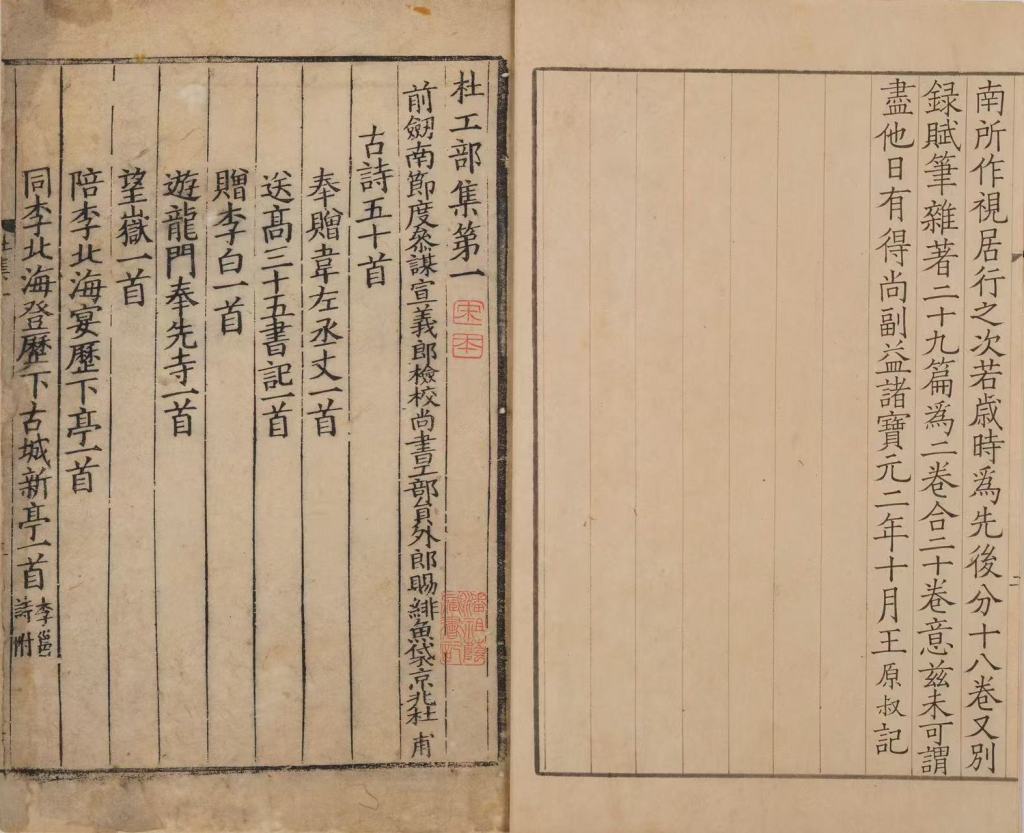 南所作視居行之次若歲時爲先後分十八卷又別
録賦筆雜著二十九篇爲二卷合二十卷意兹未可謂
盡他日有得尚副益諸寶元二年十月王原叔記
杜工部集第一
宋本
前劒南節度叅謀宣義郎檢校尚書工部員外郎賜緋魚袋京兆杜甫
潘祖蔭
藏書記
古詩五十首
奉贈韋左丞丈一首
送髙三十五書記一首
贈李白一首
遊龍門奉先寺一首
望嶽一首
陪李北海宴歷下亭一首
同李北海登歷下古城新亭一首李邕詩附